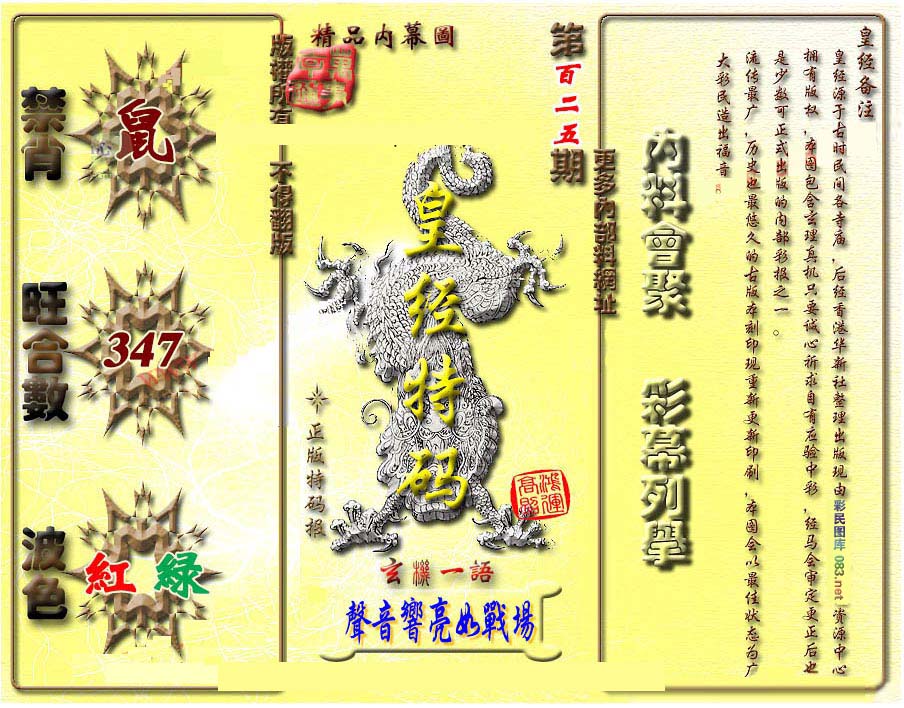 禁肖
鼠
旺合數
347
波色
紅 綠
版權所有
不得翻版
精品内幕圖
第百二五期
更多内部料網址
皇经特码
正版特码报
鴻運高照
玄機一語
聲音響亮如戰場
内料會聚
彩幕列擧
皇经备注
皇经源于古时民间各寺庙，后经香港华新社整理出版现由彩民图库 083.net 资源中心
拥有版权，本图包含玄理真机只要诚心祈求自有应验中彩，经马会审定更正后也
是少数可正式出版的内部彩报之一。
流传最广，历史也最悠久的古版本刻印现重新更新印刷，本图会以最佳状态为广
大彩民造出福音